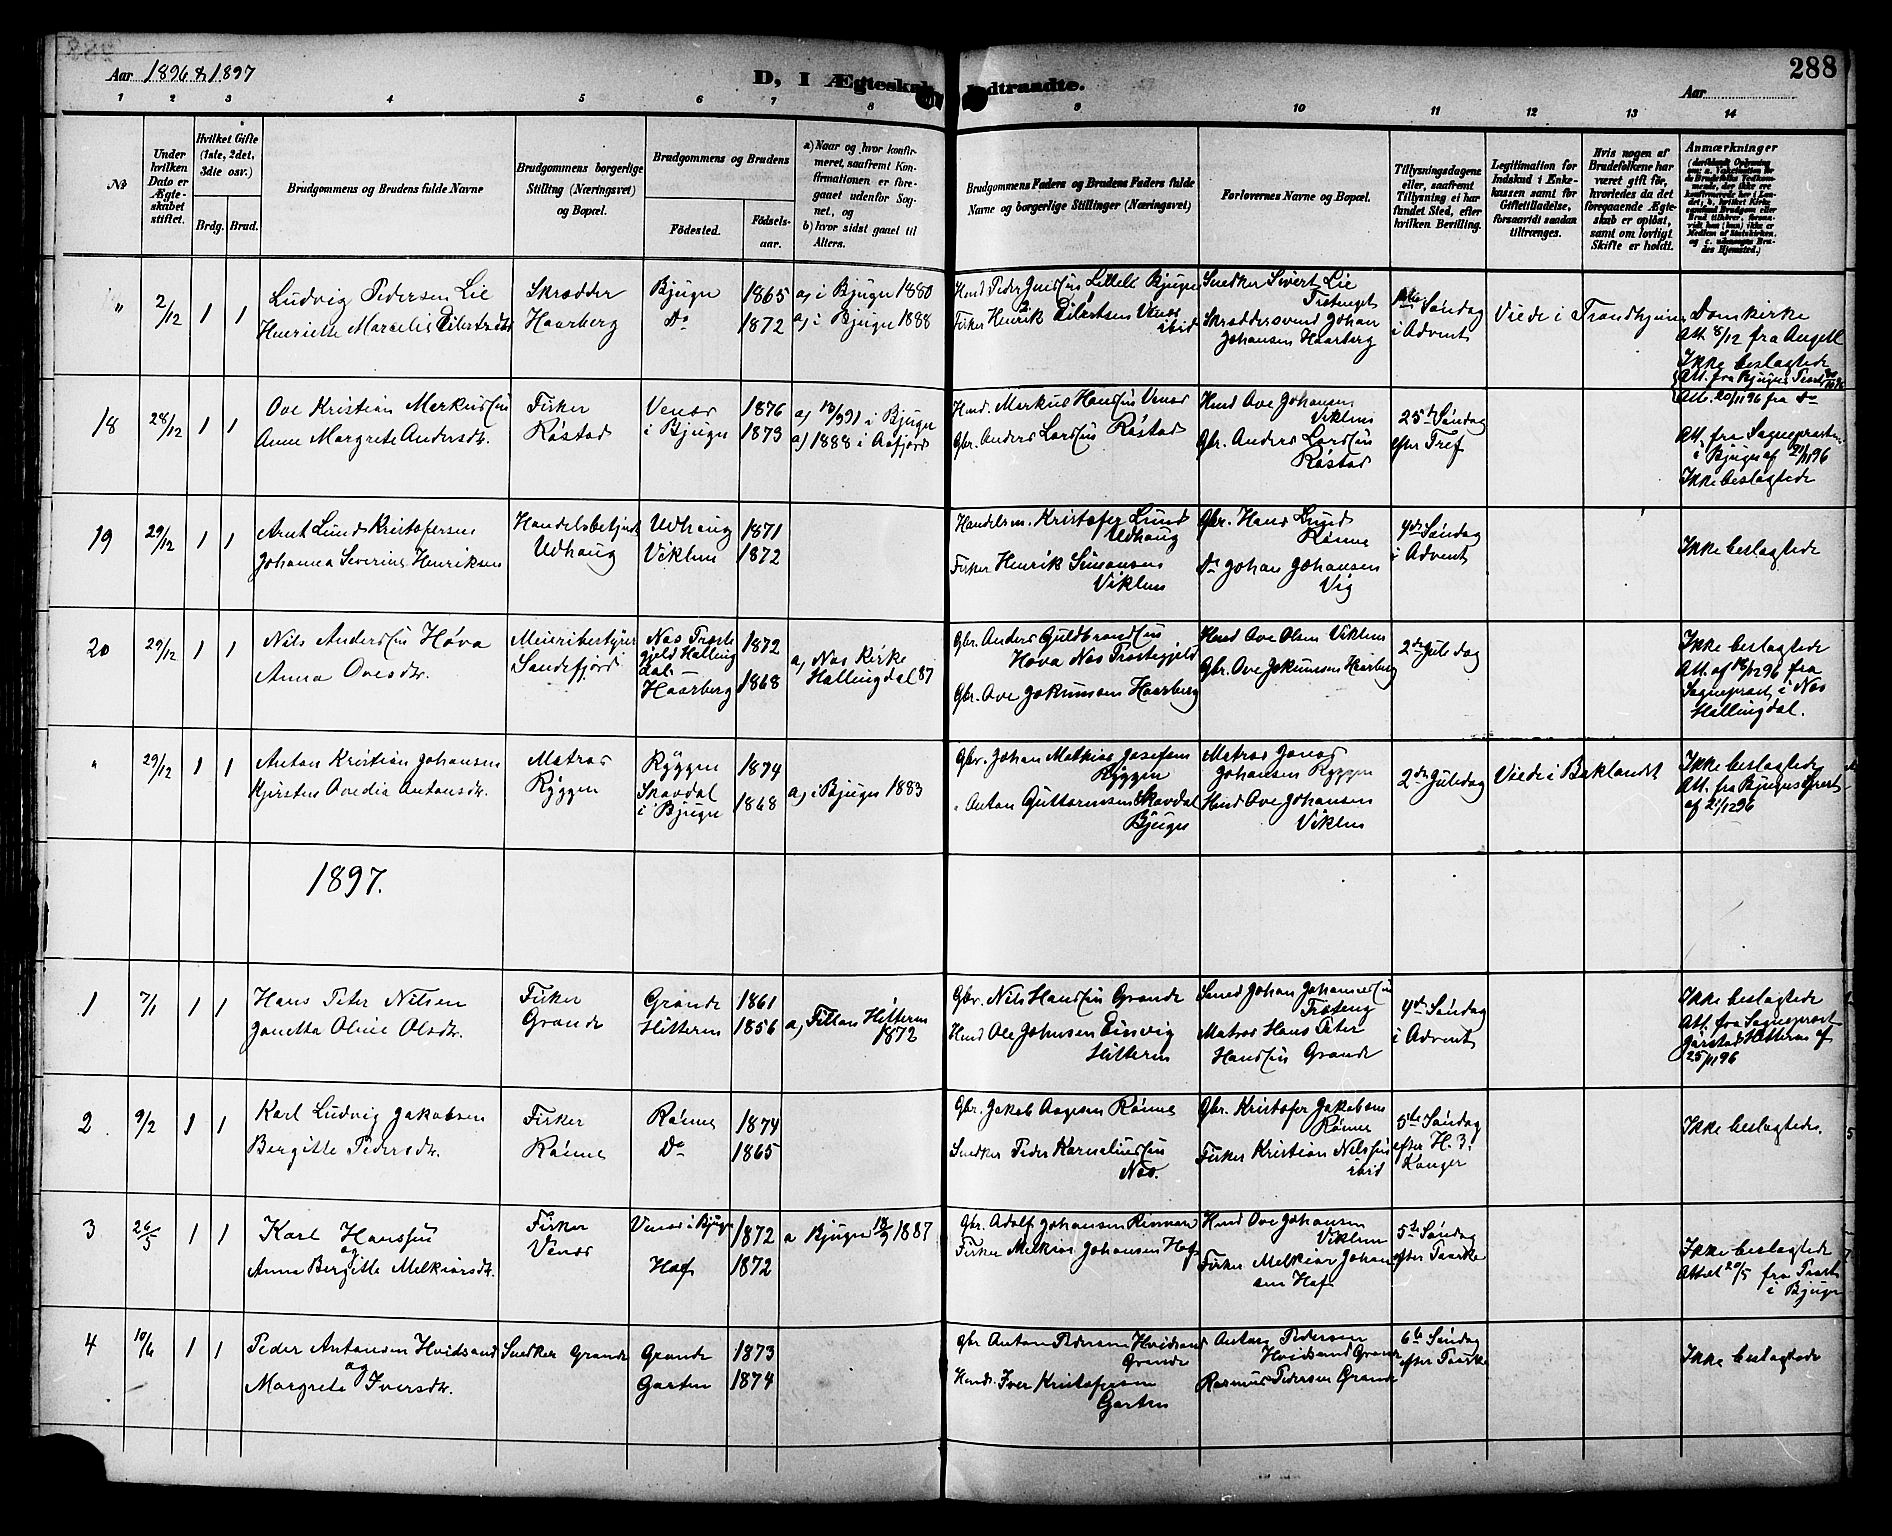 Aar 1896 & 1897
D, I Ægteskab Indtraadte.
288
Aar
1 2 3 4 5 6 7 8 9 10 11 12 13 14
No
Under hvilken Dato er Ægteskabet stiftet.
Hvilket Gifte (1ste, 2det, 3die osv.)
Brdg. Brud.
Brudgommens og Brudens fulde Navne
Brudgommens borgerlige Stilling (Næringsvei) og Bopæl.
Brudgommens og Brudens
Födested.
Födselsaar.
a) Naar og hvor konfirmeret, saafremt Konfirmationen er foregaaet udenfor Sognet, og
b) hvor sidst gaaet til Alters.
Brudgommens Faders og Brudens Faders fulde Navne og borgerlige Stillinger (Næringsvei)
Forlovernes Navne og Bopæl.
Tillysningsdagene eller, saafremt Tillysning ei har fundet Sted, efter hvilken Bevilling.
Legitimation for Indskud i Enkekassen samt for Giftetilladelse, forsaavidt saadan tiltrænges.
Hvis nogen af Brudefolkene har været gift för, hvorledes da det foregaaende Ægteskab er oplöst, samt om lovligt Skifte er holdt.
Anmærkninger
" 2/12 1 1
Ludvig Pedersen Lie
Henriette Marcelie Eilertsdtr
Skrædder
Haarberg
Bjugn 1865
Do 1872
a) i Bjugn 1880
a) i Bjugn 1888
Firker Henrik Eilertsen Venæs ibid
Snedker Sivert Lie
Skræddersvend Johan
Johansen Haarberg
1ste Söndag
i Advent
Viede i Trondhjems Domkirke
Att 8/12 fra Angell
Ikke beslagtede
18 28/12 1 1
Ove Kristian Merkussen
Anne Margrete Andersdtr.
Fisker
Röstad
Venæs 1876
i Bjugn 1873
a) 13/9 91 i Bjugn
a) 1888 i Aafjord
Hmd. Merkus Hansen Venæs
Gbr. Anders Larsen Röstad
Hmd Ove Johansen
Viklem
Gbr. Anders Larsen
Röstad
25de Söndag
efter Tref
Att. 20/11 96 fra do
Att. fra Sognepræsten
i Bjugn af 21/11 96
Ikke beslagtede
19 29/12 1 1
Arnt Lund Kristofersen
Johanna Severine Henriksen
Handelsbetjent
Udhaug
Udhaug 1871
Viklem 1872
Handelsm. Kristofer Lund
Udhaug
Fisker Henrik Simonsen
Viklem
Gbr. Hans Lund
Rönne
Do Johan Johansen
Vig
4de Söndag
i Advent
Ikke beslagtede
20 29/12 1 1
Nils Andersen Höva
Anna Ovesdtr.
Meieribestyrer
Sandefjord
Nes Præste
gjeld Halling
dal 1872
Haarberg 1868
a) Nes Kirke
Hallingdal 87
Gbr. Anders Guldbrandsen
Höva Nes Præstegjeld
Gbr. Ove Jokumsen Haarberg
Hmd Ove Olsen Viklem
Gbr. Ove Jokumsen Haarberg
2den Juledag
Ikke beslagtede
Att. af 18/12 96 fra
Sognepræst i Nes
Hallingdal.
" 29/12 1 1
Anton Kristian Johansen
Kjersten Ovedia Antonsdtr.
Matros
Ryggen
Ryggen 1874
Skavdal
i Bjugn 1868
a) i Bjugn 1883
Gbr. Johan Melkior Josefsen
Ryggen
" Anton Guttormsen Skavdal
Bjugn
Matros Jonas
Johansen Ryggen
Hmd Ove Johansen
Viklem
2den Juledag
Viede i Baklandet
Ikke beslagtede
Att. fra Bjugns Præst
af 21/12 96
1897.
1 7/1 1 1
Hans Peter Nilsen
Janetta Oline Olsdtr.
Fisker
Grande
Grande 1861
Hitteren 1856
a) Fillan Hitteren
1872
Gbr. Nils Hansen Grande
Hmd Ole Johnsen
Hitteren
Smed Johan Johannessen
Matros Hans Peter
Hansen Grande
4de Söndag
i Advent
Ikke beslagtede
Att. fra Sognepræst
Hitteren af
25/11 96
2 9/2 1 1
Karl Ludvig Jakobsen
Bergitte Pedersdtr.
Fisker
Rönne
Rönne 1874
Do 1865
Gbr. Jakob Aagesen Rönne
Snedker Peder Korneliussen
Nes.
Gbr. Kristofer Jakobsen
Rönne
Fisker Kristian Nilssen
ibid
5te Söndag
efter H. 3
Konger
Ikke beslagtede.
3 26/5 1 1
Karl Hanssen
og
Anna Bergitte Melkiorsdtr.
Fisker
Venæs
Venæs i Bjugn 1872
Hof 1872
a Bjugn 18/9 1887
Gbr. Adolf Johansen
Fisker Melkior Johansen Hof
Hmd Ove Johansen
Viklem
Fisker Melkior Johan
sen Hof
5te Söndag
efter Paaske
Ikke beslagtede
Attest 20/5 fra Præst
i Bjugn
4 10/6 1 1
Peder Antonsen Hvidsand
og
Margrete Iversdtr.
Snedker Grande
Grande 1873
Garten 1874
Gbr Anton Pedersen Hvidsand
Grande
Hmd. Iver Kristofersen
Garten
Anton Pedersen
Hvidsand Grande
Rasmus Pedersen Grande
6te Söndag
efter Paaske
Ikke beslagtede